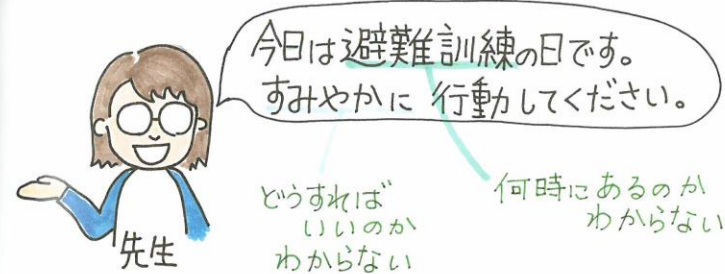 今日は避難訓練の日です。
すみやかに行動してください。
先生
どうすれば
いいのか
わからない
何時にあるのか
わからない